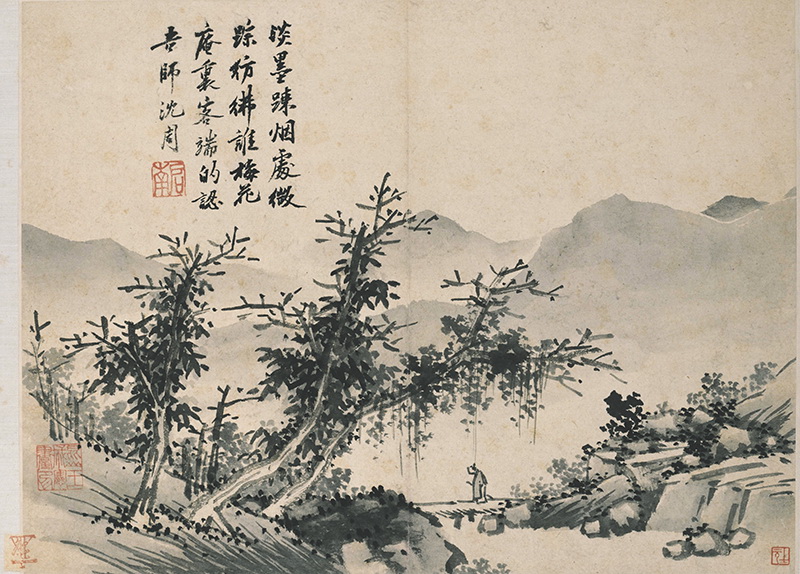 淡墨踈烟處微
踪彷彿誰梅花
庵裏客端的認
吾師沈周
啓南